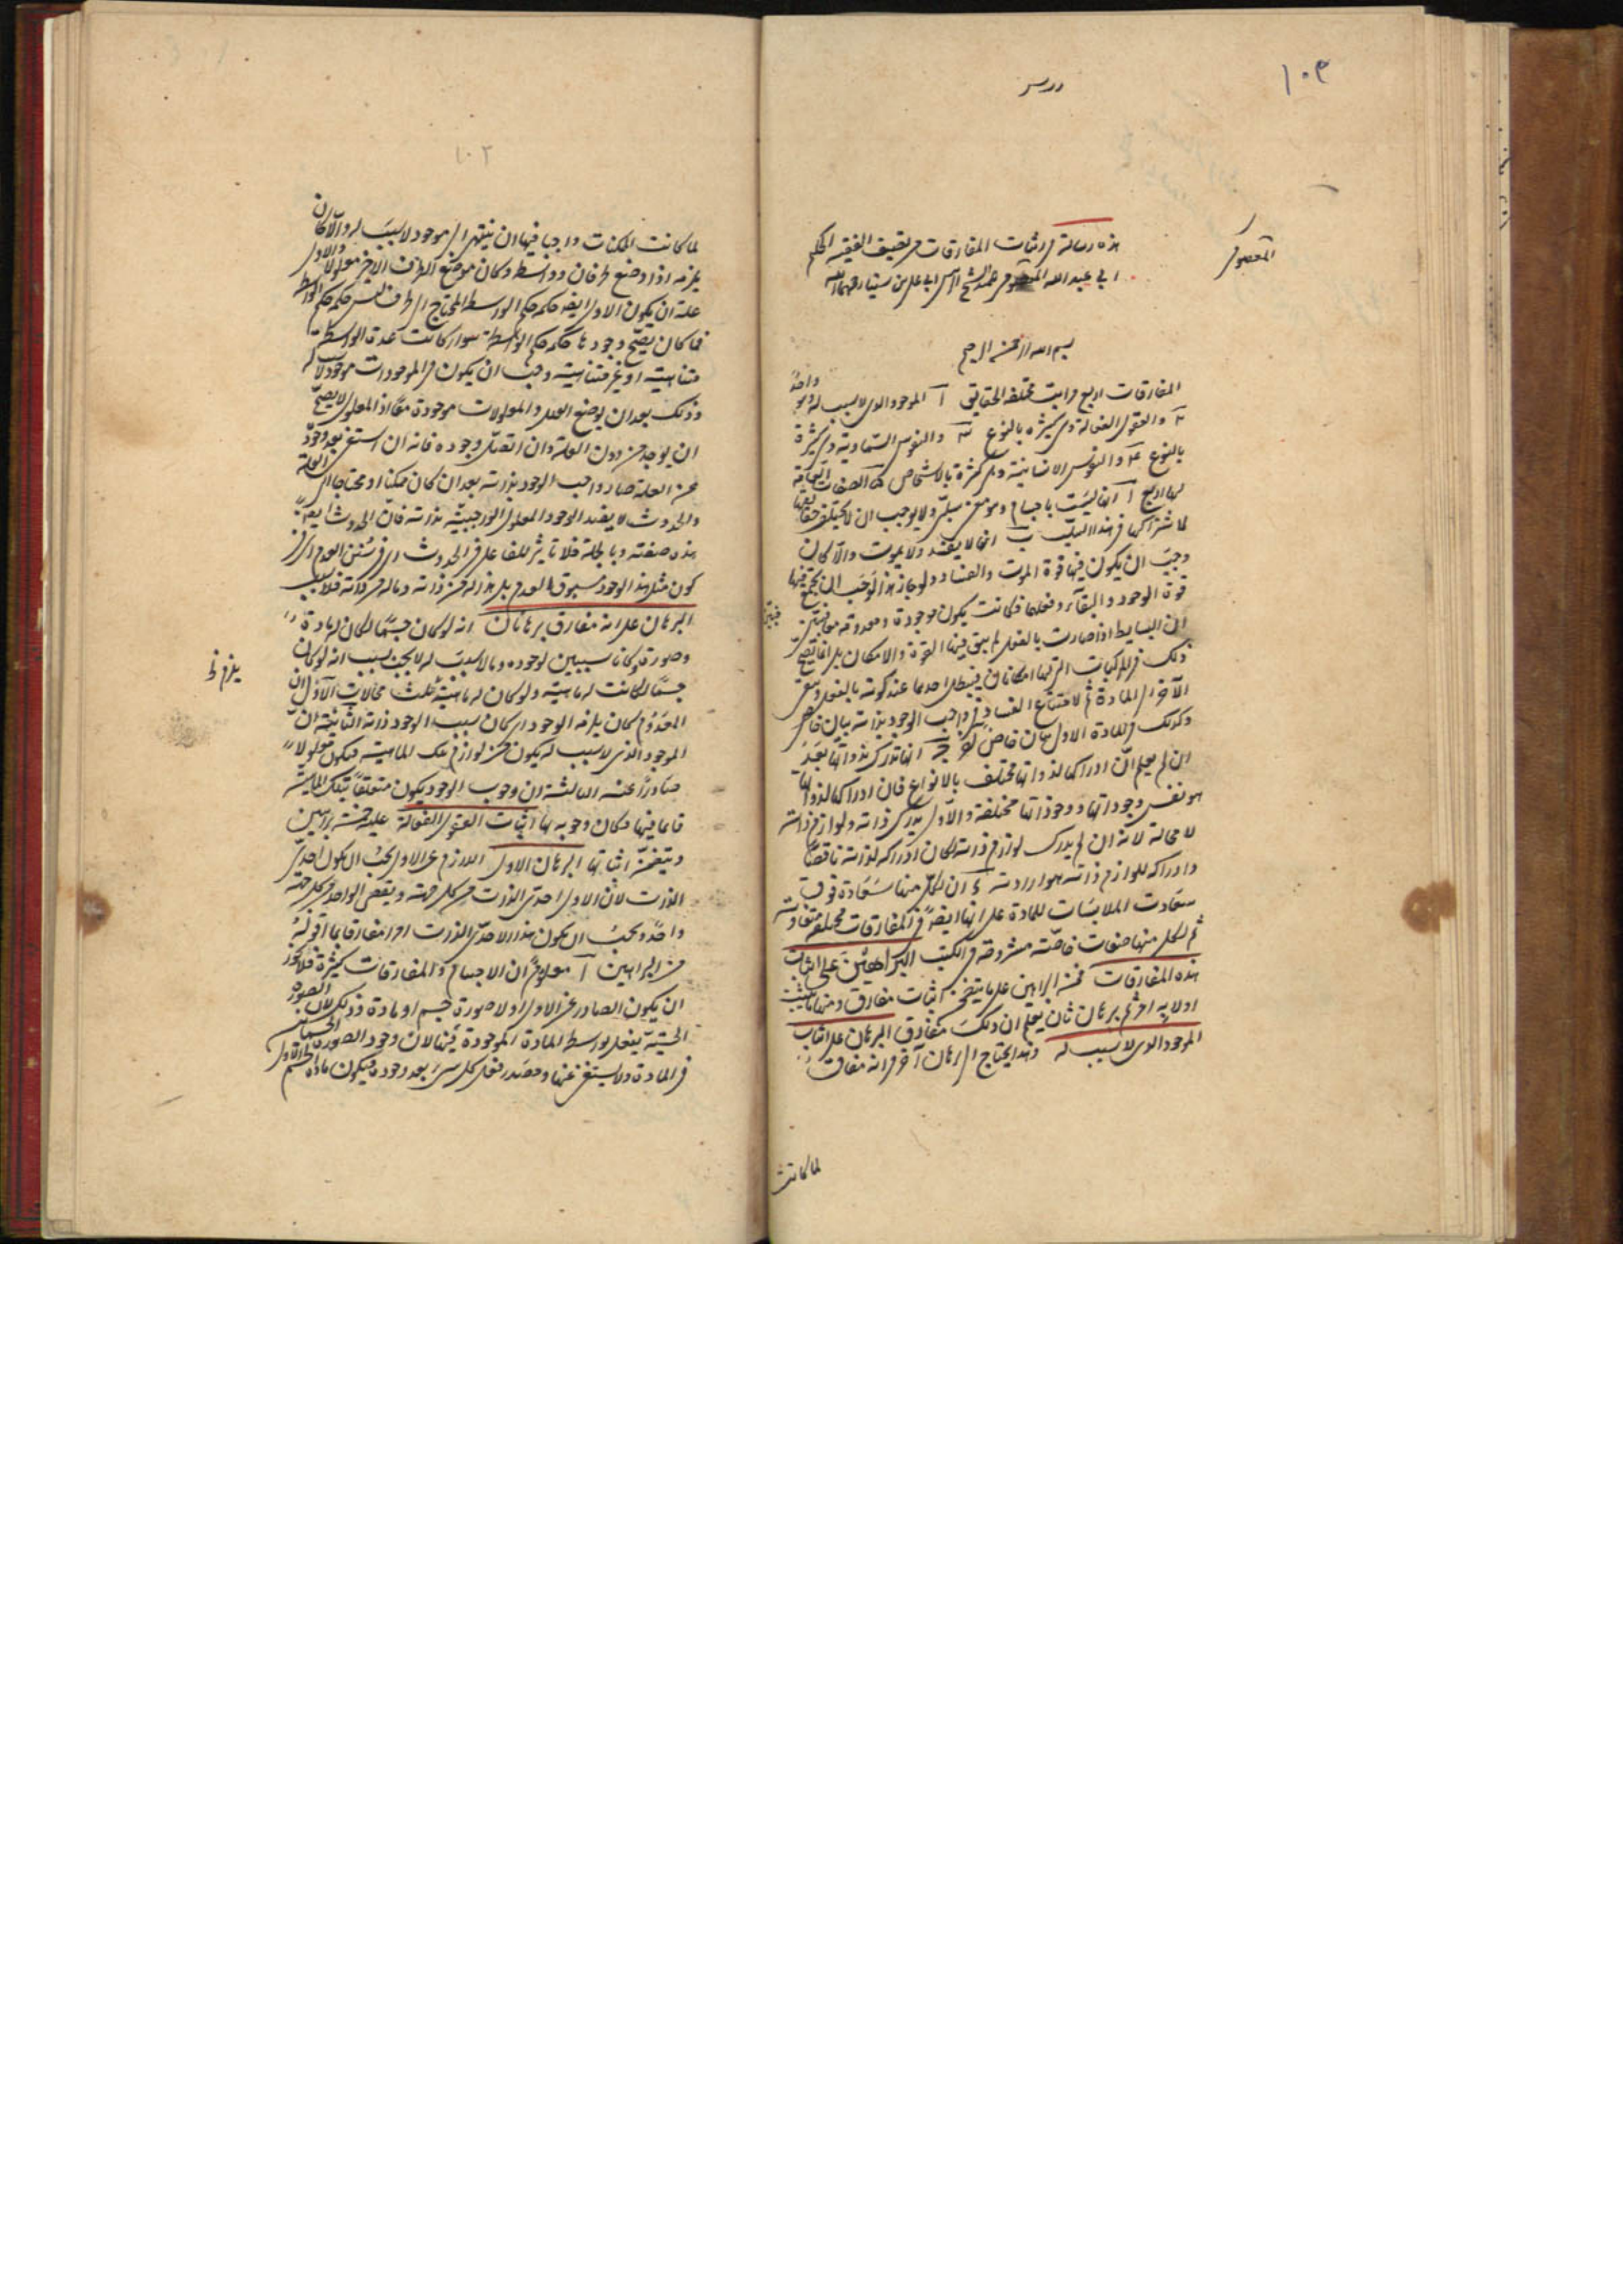 ١٠٣
درس
هذه رسالة في اثبات المفارقات من تصنيف الفقيه الحكيم
ابي عبد الله المعصومي تلميذ الشيخ الرئيس ابي علي بن سينا رحمهما الله
المعصومي
بسم الله الرحمن الرحيم
المفارقات اربع مراتب مختلفة الحقايق آ الموجود الذي لا سبب له وهو واحد
ب والعقول الفعالة وهي كثيرة بالنوع ج والنفوس السماوية وهي كثيرة
بالنوع د والنفوس الانسانية وهي كثيرة بالاشخاص الصفات العامة
لها اربع آ انها ليست باجسام وهو معنى سلبي ولا يوجب ان لا يختلف حقايقها
لاشتراكها في هذا السلب ب انها لا يفسد ولا يموت والا كان
وجب ان يكون فيها قوة الموت والفساد ولو جاز هذا لوجب ان يجتمع فيها
قوة الوجود والبقاء وفعلها فكانت يكون موجودة ومعدومة معا
ان البسايط اذا صارت بالفعل لم يبق فيها القوة والامكان بل انما يصح
ذلك في المركبات التي لها امكانان فيبطل احدهما عند كونه بالفعل ويبقى
الآخر في المادة ثم لامتناع الفساد في واجب الوجود بذاته بيان خاص
وكذلك للمادة الاولى بيان خاص ج انها تدرك ذواتها بعد
ان لم يعلم ان ادراكها لذواتها مختلف بالانواع فان ادراكها لذواتها
هو نفس وجوداتها ووجوداتها مختلفة والاول يدرك ذاته ولوازم ذاته
لا محالة لانه ان لم يدرك لوازم ذاته لكان ادراكه لذاته ناقصا
وادراكه للوازم ذاته هو ارادته د ان لكل منها سعادة فوق
سعادت الملابسات للمادة على انها ايضا في المفارقات مختلفة متفاوتة
ثم لكل منها صفات خاصة مشروحة في الكتب البراهين على اثبات
هذه المفارقات خمسة البراهين على ما يتضح اثبات مفارق ومنها ما يثبت
اولا به امر ثم برهان ثان يعلم ان ذلك مفارق البرهان على اثبات
الموجود الذي لا سبب له وهذا يحتاج الى برهان آخر في انه مفارق
لما كانت
١٠٢
لما كانت الممكنات واجبا فيها ان ينتهي الى موجود لا سبب له والا كان
يلزم اذا وضع طرفان وواسطة وكان موضع الطرف الاخير معلولا والاول
علة ان يكون الاول ايضا حكمه حكم الواسط المحتاج الى طرف ليس حكمه حكم الواسط
فما كان يصح وجودها حكمه حكم الواسطة سواء كانت عدة الواسطة
متناهية او غير متناهية وجب ان يكون في الموجودات موجود لا سبب له
وذلك بعد ان يوضع العلل والمعلولات موجودة معا اذ المعلول لا يصح
ان يوجد من دون العلة وان اتصل وجوده فانه ان استغنى بعد وجوده
عن العلة صار واجب الوجود بذاته بعد ان كان ممكنا ومحتاجا الى العلة
والحدوث لا يفيد الوجود المعلول الوجوبية بذاته فان الحدوث ايضا
هذه صفته وبالجملة فلا تاثير للفاعل في الحدوث
كون مثل هذا الوجود مسبوق العدم بل هذا له من ذاته وما له من ذاته فلا سبب
البرهان على انه مفارق برهانان انه لو كان جسما لكان له مادة
وصورة وكانا سببين لوجوده وما لا سبب له لا يجب بسبب انه لو كان
جسما لكانت له ماهية ولو كان له ماهية ثلث محالات الاول ان
المعدوم كان يلزمه الوجود اي كان سبب الوجود ذاته الثانية ان
الموجود الذي لا سبب له يكون من لوازم تلك الماهية فيكون معلولا
صادرا عنه الثالثة ان وجوب الوجود يكون متعلقا بتلك الماهية
قايما فيها فكان وجوبه بها اثبات العقول الفعالة عليه خمسة براهين
ويتضمن اثباتها البرهان الاول اللازم عن الاول يجب ان يكون احدي
الذات لان الاول احدي الذات من كل جهة ويقتضي الواحد من كل جهة
واحدا ويجب ان يكون هذا الاحدي الذات امرا مفارقا
من البراهين آ معلوم ان الاجسام والمفارقات كثيرة فلا يجوز
ان يكون الصادر عن الاول اولا صورة جسم او مادة وذلك لان الصورة
الجسمية يفعل بواسطة المادة الموجودة فيها لان وجود الصورة الجسمانية
في المادة ولا يستغني عنها ومصدر فعل كل شيء بعد وجوده فيكون مادة الجسم الاول
يلزم